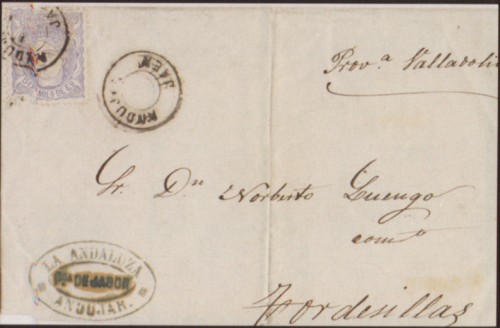 ANDUJAR
JAEN
ANDUJAR
JAEN
Prov.ª Valladolid
Sr. Dn Norberto Luengo
comº
Tordesillas
LA ANDALUZA
DE JABON
ANDUJAR.